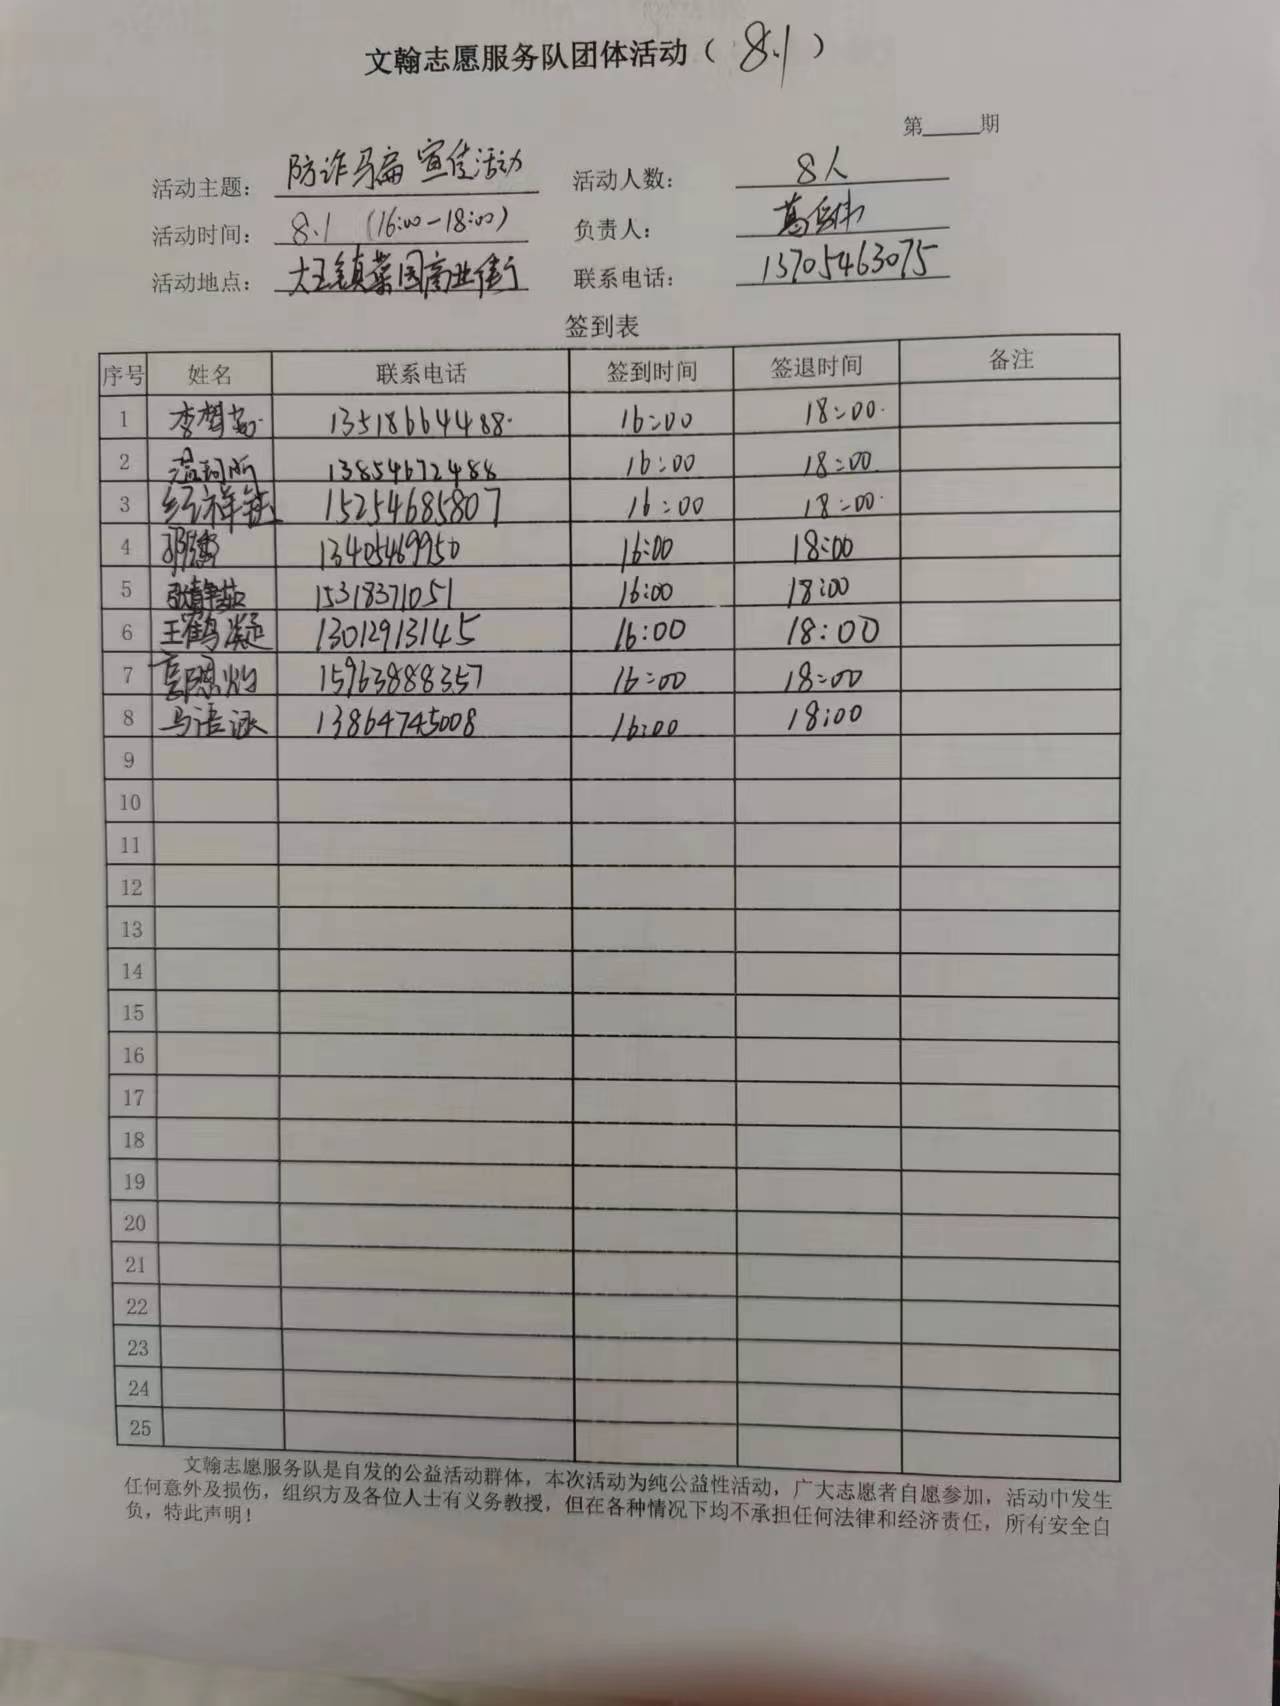 文翰志愿服务队团体活动（ 8.1 ）
第_____期
活动主题： 防诈马扁 宣传活动 活动人数： 8人
活动时间： 8.1 (16:00-18:00) 负责人：
活动地点： 大王镇菜园商业街 联系电话： 13705463075
签到表
序号 姓名 联系电话 签到时间 签退时间 备注
1 13518664488 16:00 18:00
2 13854672488 16:00 18:00
3 15254685807 16:00 18:00
4 13405469950 16:00 18:00
5 张静茹 15318371051 16:00 18:00
6 王鹤凝 13012913145 16:00 18:00
7 15963888357 16:00 18:00
8 马语涵 13864745008 16:00 18:00
9
10
11
12
13
14
15
16
17
18
19
20
21
22
23
24
25
文翰志愿服务队是自发的公益活动群体，本次活动为纯公益性活动，广大志愿者自愿参加，活动中发生
任何意外及损伤，组织方及各位人士有义务教授，但在各种情况下均不承担任何法律和经济责任，所有安全自
负，特此声明！